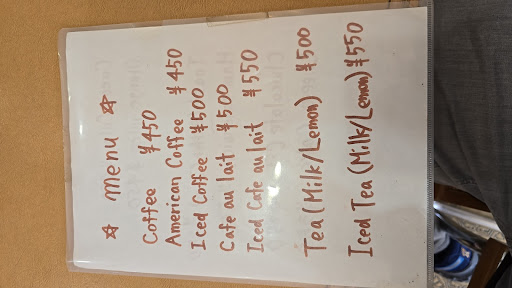 ☆ Menu ☆
Coffee ¥450
American Coffee ¥450
Iced Coffee ¥500
Cafe au lait ¥500
Iced Cafe au lait ¥550
Tea (Milk/Lemon) ¥500
Iced Tea (Milk/Lemon) ¥550